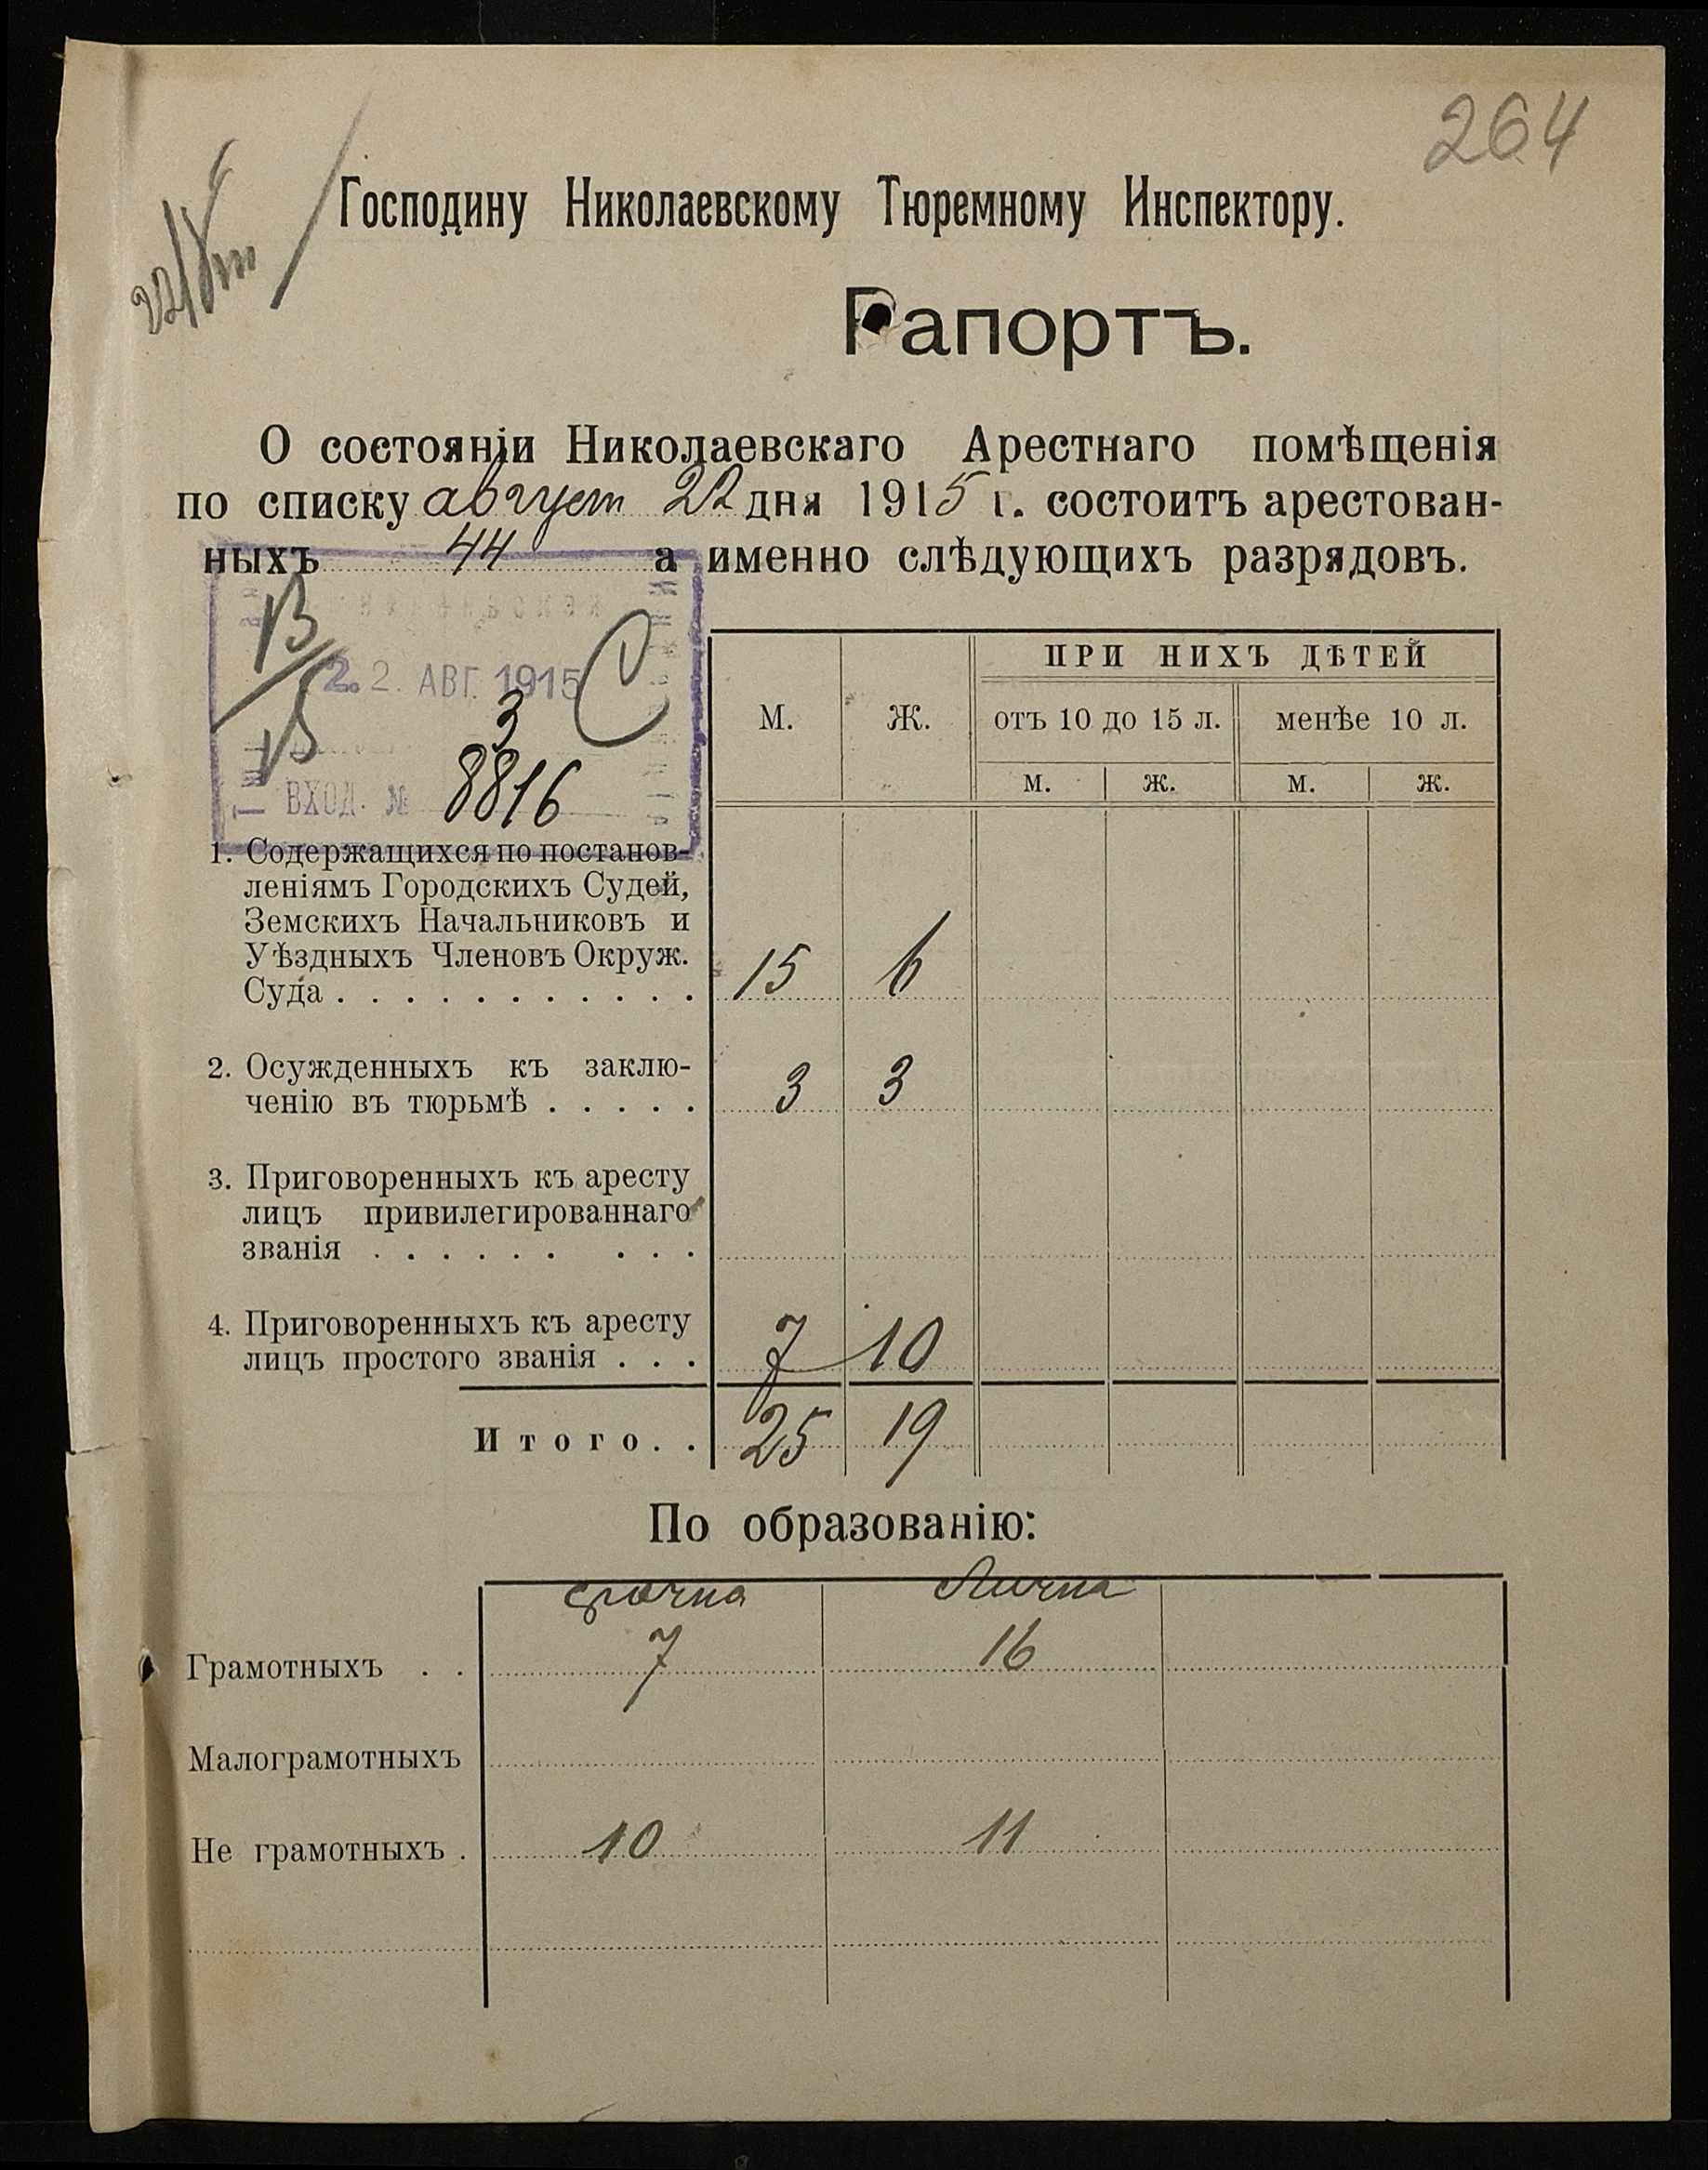 264
22/VIII
Господину Николаевскому Тюремному Инспектору.
Рапортъ.
О состоянiи Николаевскаго Арестнаго помѣщенiя
по списку август 22 дня 1915 г. состоитъ арестован-
ныхъ 44 а именно слѣдующихъ разрядовъ.
22. АВГ. 1915
3
ВХОД. № 8816
М. Ж. ПРИ НИХЪ ДѢТЕЙ
отъ 10 до 15 л. менѣе 10 л.
м. ж. м. ж.
1. Содержащихся по постанов-
ленiямъ Городскихъ Судей,
Земскихъ Начальниковъ и
Уѣздныхъ Членовъ Окруж.
Суда . . . . . . . . . . . 15 6
2. Осужденныхъ къ заклю-
ченiю въ тюрьмѣ . . . . . 3 3
3. Приговоренныхъ къ аресту
лицъ привилегированнаго
званiя . . . . . . . . .
4. Приговоренныхъ къ аресту
лицъ простого званiя . . . 7 10
Итого. . 25 19
По образованiю:
срочна Лична
Грамотныхъ . . 7 16
Малограмотныхъ
Не грамотныхъ . 10 11